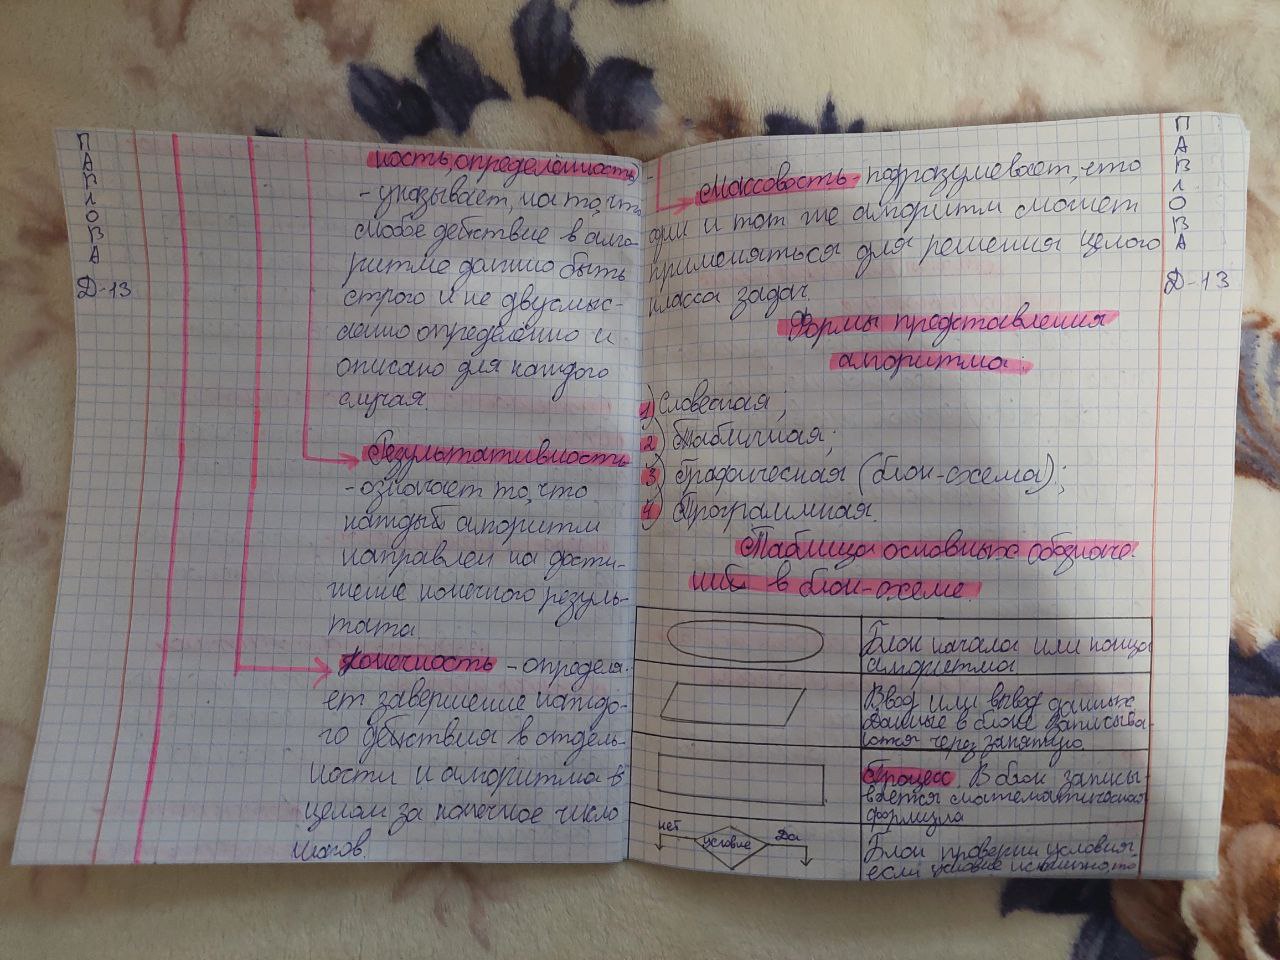 ПАВЛОВА
Д-13
ность, определённость)
- указывает, на то, что
любое действие в алго-
ритме должно быть
строго и не двусмыс-
ленно определено и
описано для каждого
случая.
Результативность
- означает то, что
каждый алгоритм
направлен на дости-
жение конечного резуль-
тата.
Конечность - определя-
ет завершение каждо-
го действия в отдель-
ности и алгоритма в
целом за конечное число
шагов.
Массовость - подразумевает, что
один и тот же алгоритм может
применяться для решения целого
класса задач.
Формы представления
алгоритма.
1) Словесная;
2) Табличная;
3) Графическая (блок-схема);
4) Программная.
Таблица основных обознач-
ний в блок-схеме.
Блок начала или конца
алгоритма
Ввод или вывод данных
Данные в блоке записыва-
ются через запятую
Процесс. В блок записы-
вается математическая
формула
нет условие Да
Блок проверки условия,
если условие истинно, то
ПАВЛОВА
Д-13